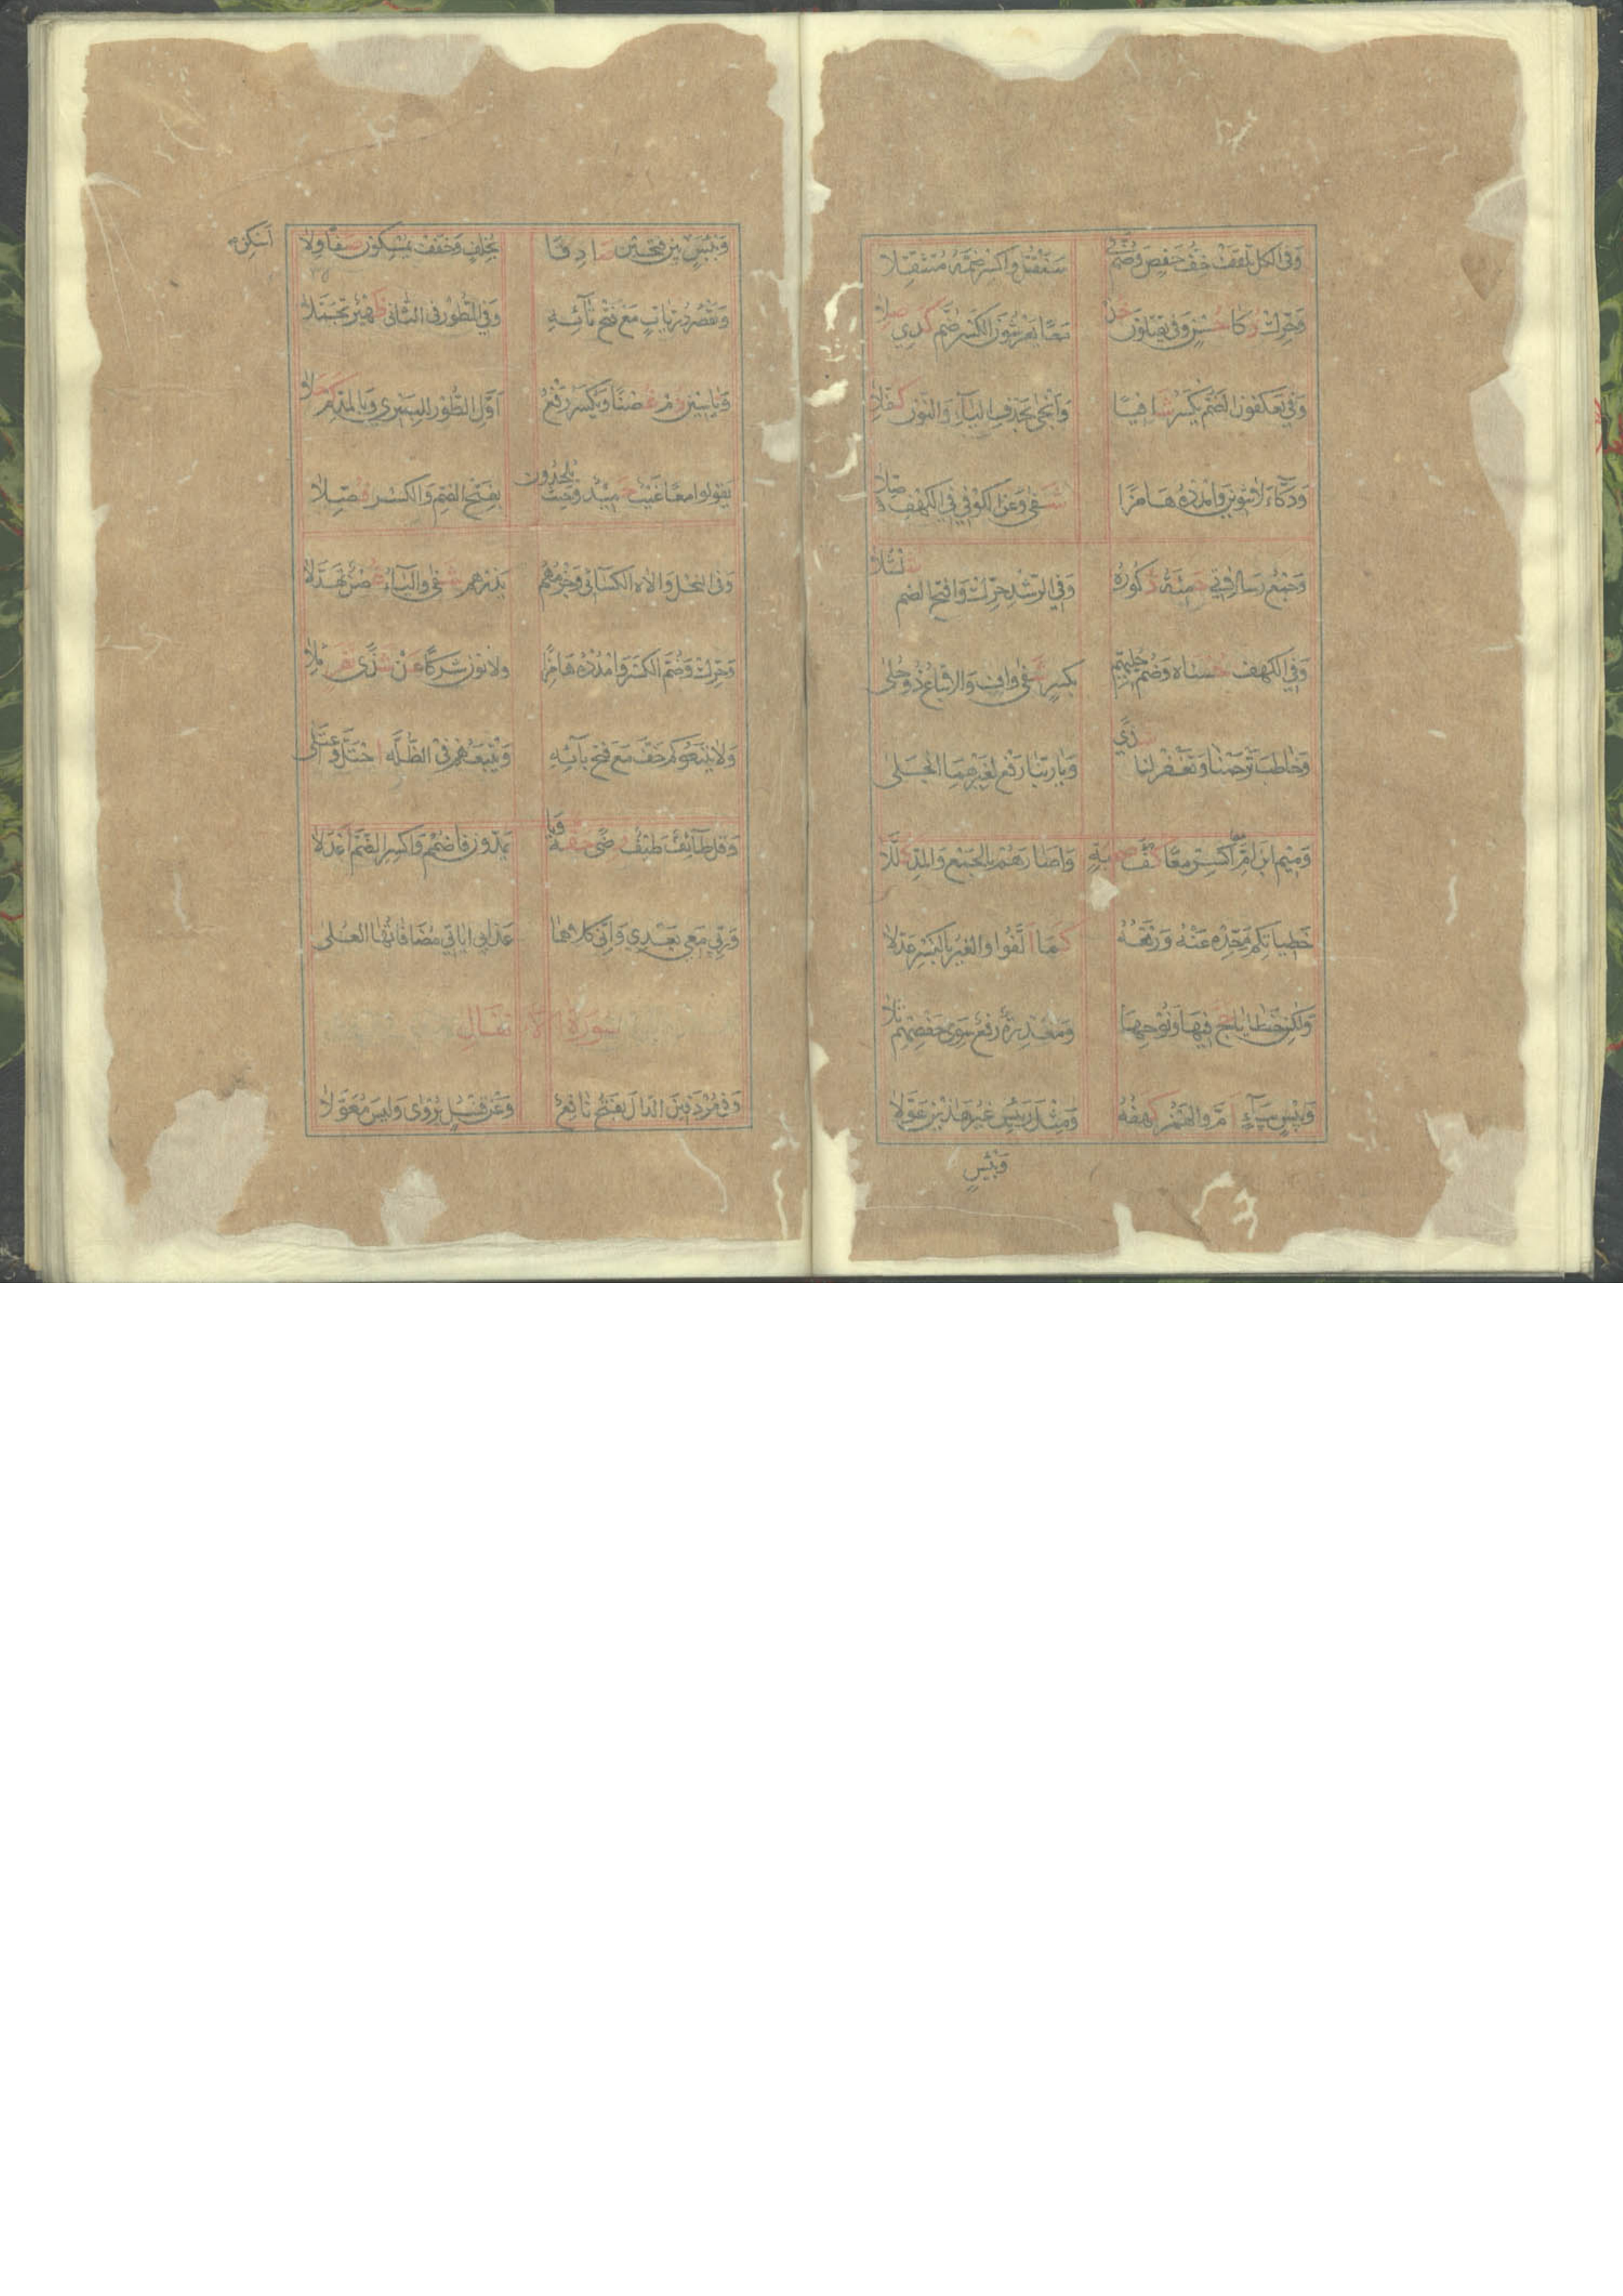 وَفِي الكل تلقف خف حفص وضم في
سنقتل واكسر ضمه متثقلا
وحرك ذكا حسن وفي يقتلون خذ
معا يعرشون الكسر ضم كذي صلا
وفي يعكفون الضم يكسر شافيا
وانجى بحذف الياء والنون كفلا
ودكاء لا تنوين وامدده هامزا
شفى وعن الكوفي في الكهف وصلا
وجمع رسالاتي حمته ذكوره
وفي الرشد حرك وافتح الضم شلشلا
وفي الكهف حسناه وضم حليهم
بكسر شفى واف والاتباع ذو حلى
وخاطب ترحمنا وتغفر لنا شذي
وبا ربنا رفع لغيرهما انجلى
وميم ابن ام اكسر معا كف صحبة
واصارهم بالجمع والمد كللا
خطياتكم وحده عنه ورفعه
كما الفوا والغير بالكسر عدلا
ولكن خطايا حج فيها ونوحها
ومعذرة رفع سوى حفصهم تلا
وبيس بياء ام والهمز كهفه
ومثل رئيس غير هذين عولا
وبيئس
وبيئس بين فتحين صادقا
بخلف وخفف يمسكون صفا ولا
اسكن
ويقصر ذريات مع فتح تائه
وفي الطور في الثاني ظهير تحملا
وياسين دم غصنا ويكسر رفع
اول الطور للبصري وبالمد كم حلا
يقولوا معا غيب حميد وحيث يلحدون
بفتح الضم والكسر فصلا
وفي النحل والاه الكسائي وجزمهم
يذرهم شفى والياء غصن تهدلا
وحرك وضم الكسر وامدده هامزا
ولا نون شركا عن شذى نفر ملا
ولا يتبعوكم خف مع فتح بائه
ويتبعهم في الظلة احتل واعتلى
وقل طائف طيف رضى حقه ويا
يمدون فاضمم واكسر الضم اعدلا
وربي معي بعدي واني كلاهما
عذابي اياتي مضافاتها العلى
سورة الانفال
وفي مردفين الدال يفتح نافع
وعن قنبل يروى وليس معولا